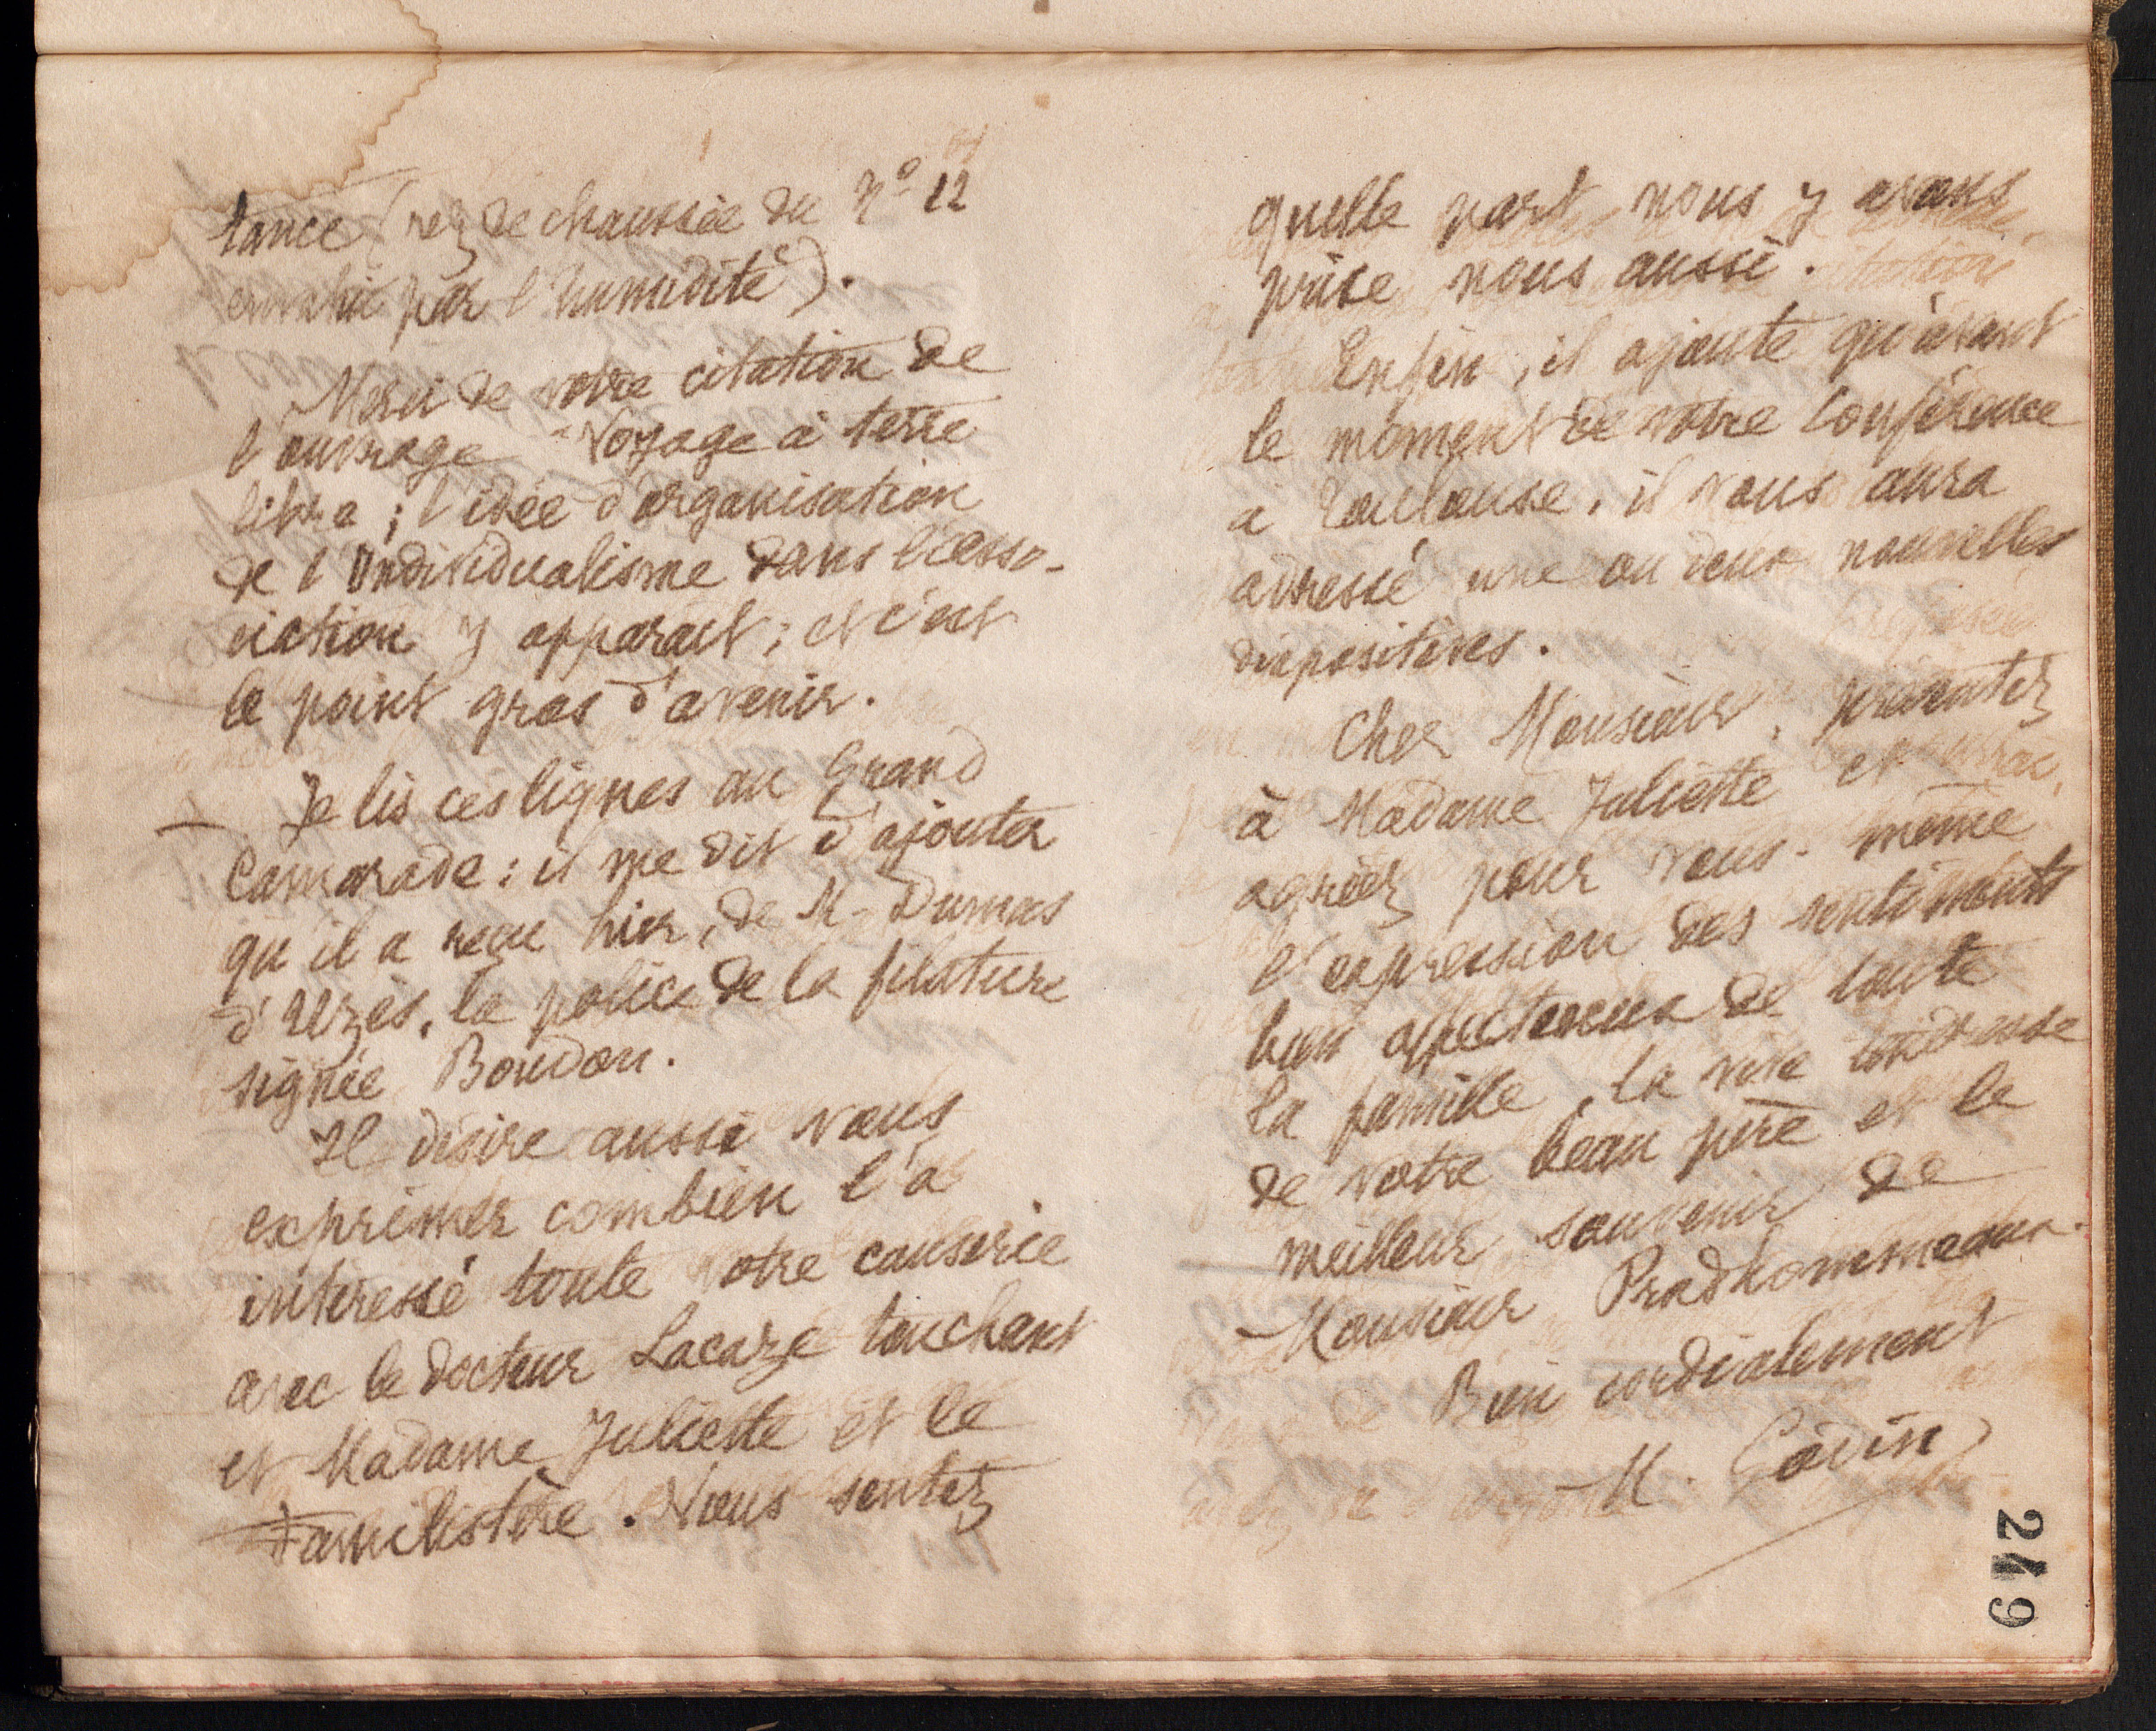 tance (rez de chaussée du Nº 12
envahi par l'humidité).
Merci de votre citation de
l'ouvrage "Voyage à terre
libre ; l'idée d'organisation
de l'Individualisme dans l'asso-
ciation y apparait ; et c'est
le point gros d'avenir.
Je lis ces lignes au Grand
Camarade : il me dit d'ajouter
qu'il a reçu hier, de M. Dumas
d'Uzès, la police de la filature
signée Boudon.
Il désire aussi vous
exprimer combien l'a
intéressé toute votre causerie
avec le docteur Lacaze touchant
et Madame Juliette et le
Familistère. Vous sentez
quelle part nous y avons
prise nous aussi.
Enfin, il ajoute qu'avant
le moment de votre Conférence
à Toulouse, il vous aura
adressé une ou deux nouvelles
diapositives.
Cher Monsieur, présentez
à Madame Juliette et
agréez pour vous-même
l'expression des sentiments
bien affectueux de toute
la famille, la vive tendresse
de votre beau père et le
meilleur souvenir de
Monsieur Pradhommeaux.
Bien cordialement
M. Godin
249